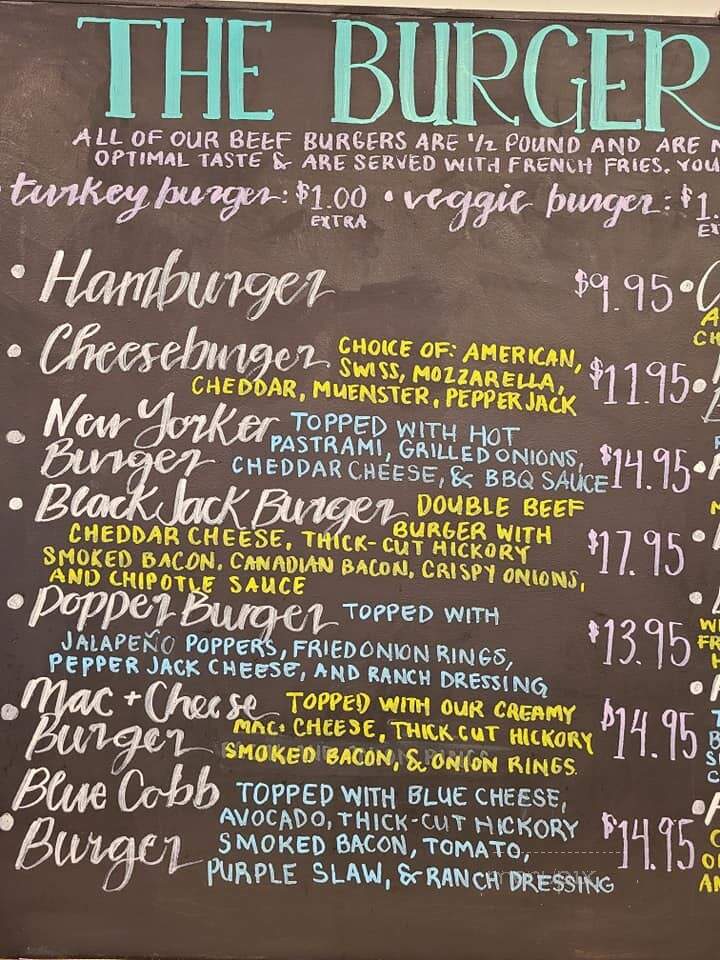 THE BURGER
ALL OF OUR BEEF BURGERS ARE 1/2 POUND AND ARE
OPTIMAL TASTE & ARE SERVED WITH FRENCH FRIES. YOU
turkey burger: $1.00 • veggie burger: $1.
EXTRA
• Hamburger $9.95
• Cheeseburger CHOICE OF: AMERICAN,
SWISS, MOZZARELLA, $11.95
CHEDDAR, MUENSTER, PEPPER JACK
• New Yorker TOPPED WITH HOT
Burger PASTRAMI, GRILLED ONIONS,
CHEDDAR CHEESE, & BBQ SAUCE $14.95
• Black Jack Burger DOUBLE BEEF
BURGER WITH
CHEDDAR CHEESE, THICK-CUT HICKORY $17.95
SMOKED BACON, CANADIAN BACON, CRISPY ONIONS,
AND CHIPOTLE SAUCE
• Popper Burger TOPPED WITH
JALAPEÑO POPPERS, FRIED ONION RINGS, $13.95
PEPPER JACK CHEESE, AND RANCH DRESSING
• Mac + Cheese TOPPED WITH OUR CREAMY
Burger MAC + CHEESE, THICK CUT HICKORY $14.95
SMOKED BACON, & ONION RINGS.
• Blue Cobb TOPPED WITH BLUE CHEESE,
Burger AVOCADO, THICK-CUT HICKORY $14.95
SMOKED BACON, TOMATO,
PURPLE SLAW, & RANCH DRESSING